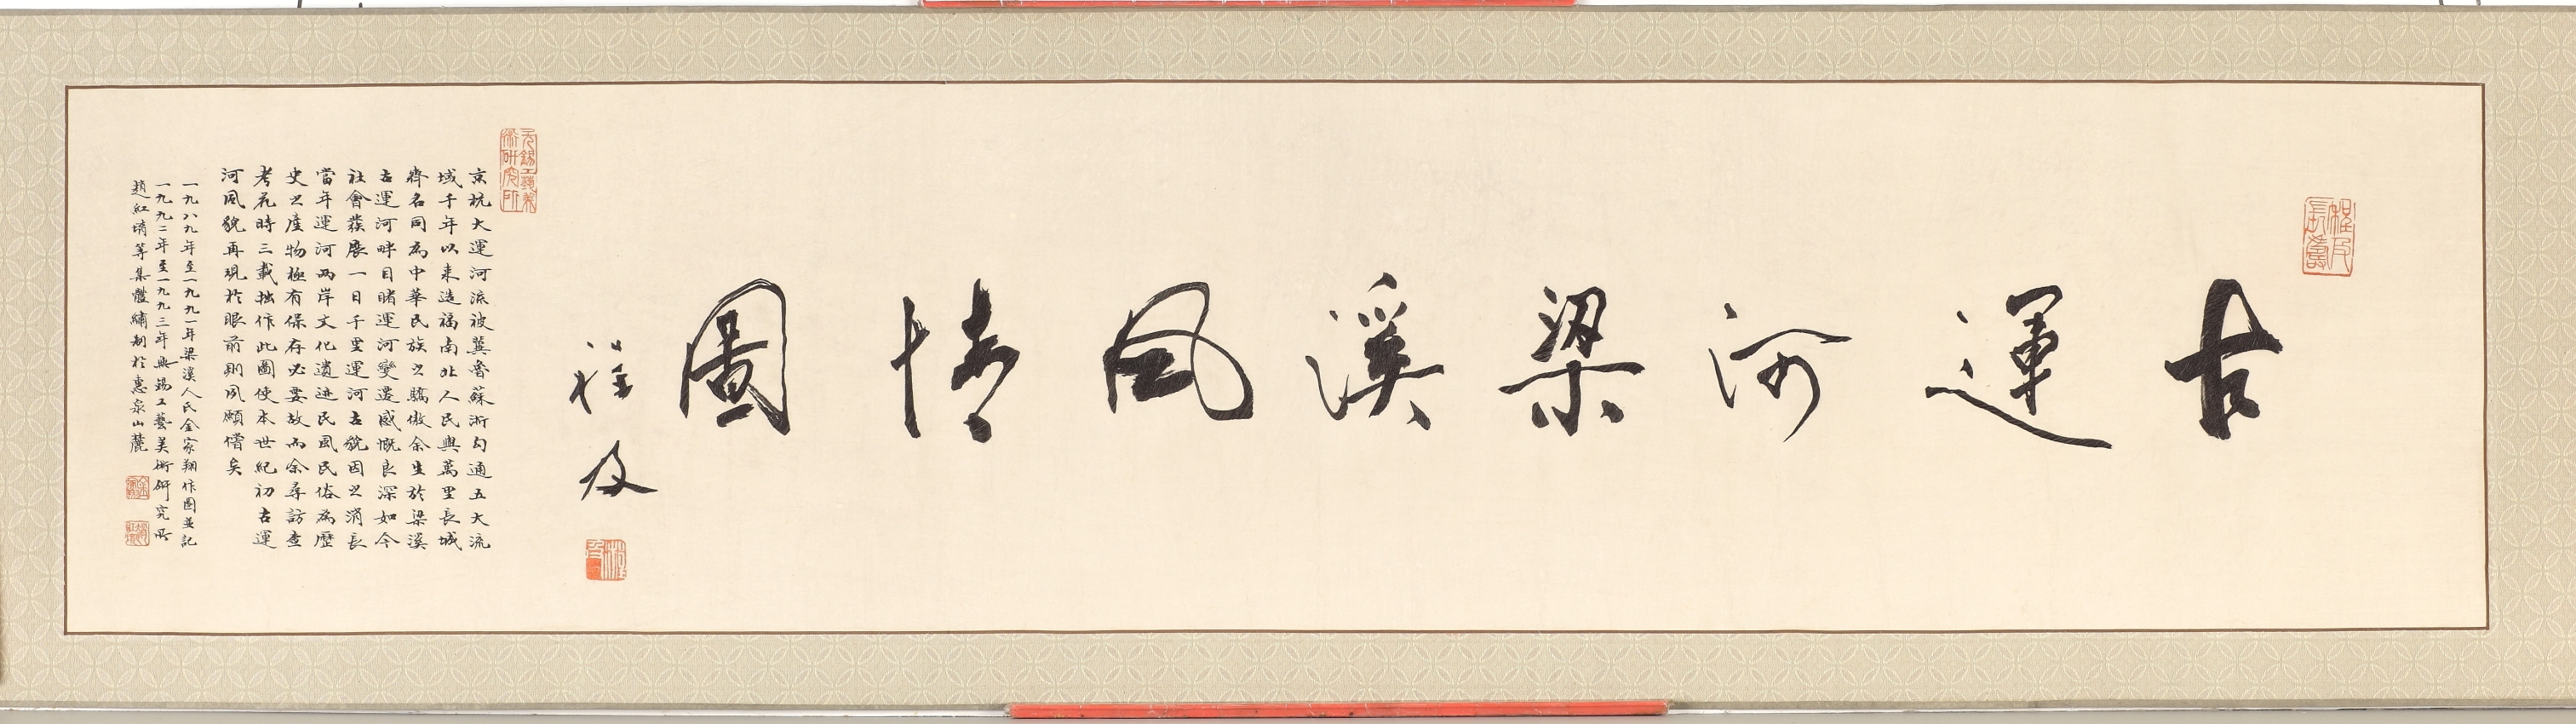 程及長壽
古運河梁溪風情圖
程及
無錫工藝美術研究所
京杭大運河流被冀魯蘇浙勾通五大流
域千年以来造福南北人民與萬里長城
齊名同為中華民族之驕傲余生於梁溪
古運河畔目睹運河變遷感慨良深如今
社會發展一日千里運河古貌因之消長
當年運河兩岸文化遺迹民風民俗為歷
史之産物極有保存必要故而余尋訪查
考花時三載拙作此圖使本世紀初古運
河風貌再現於眼前則夙願償矣
一九八九年至一九九一年梁溪人氏金家翔作圖並記
一九九二年至一九九三年無錫工藝美術研究所
趙紅靖等集體繡制於惠泉山麓